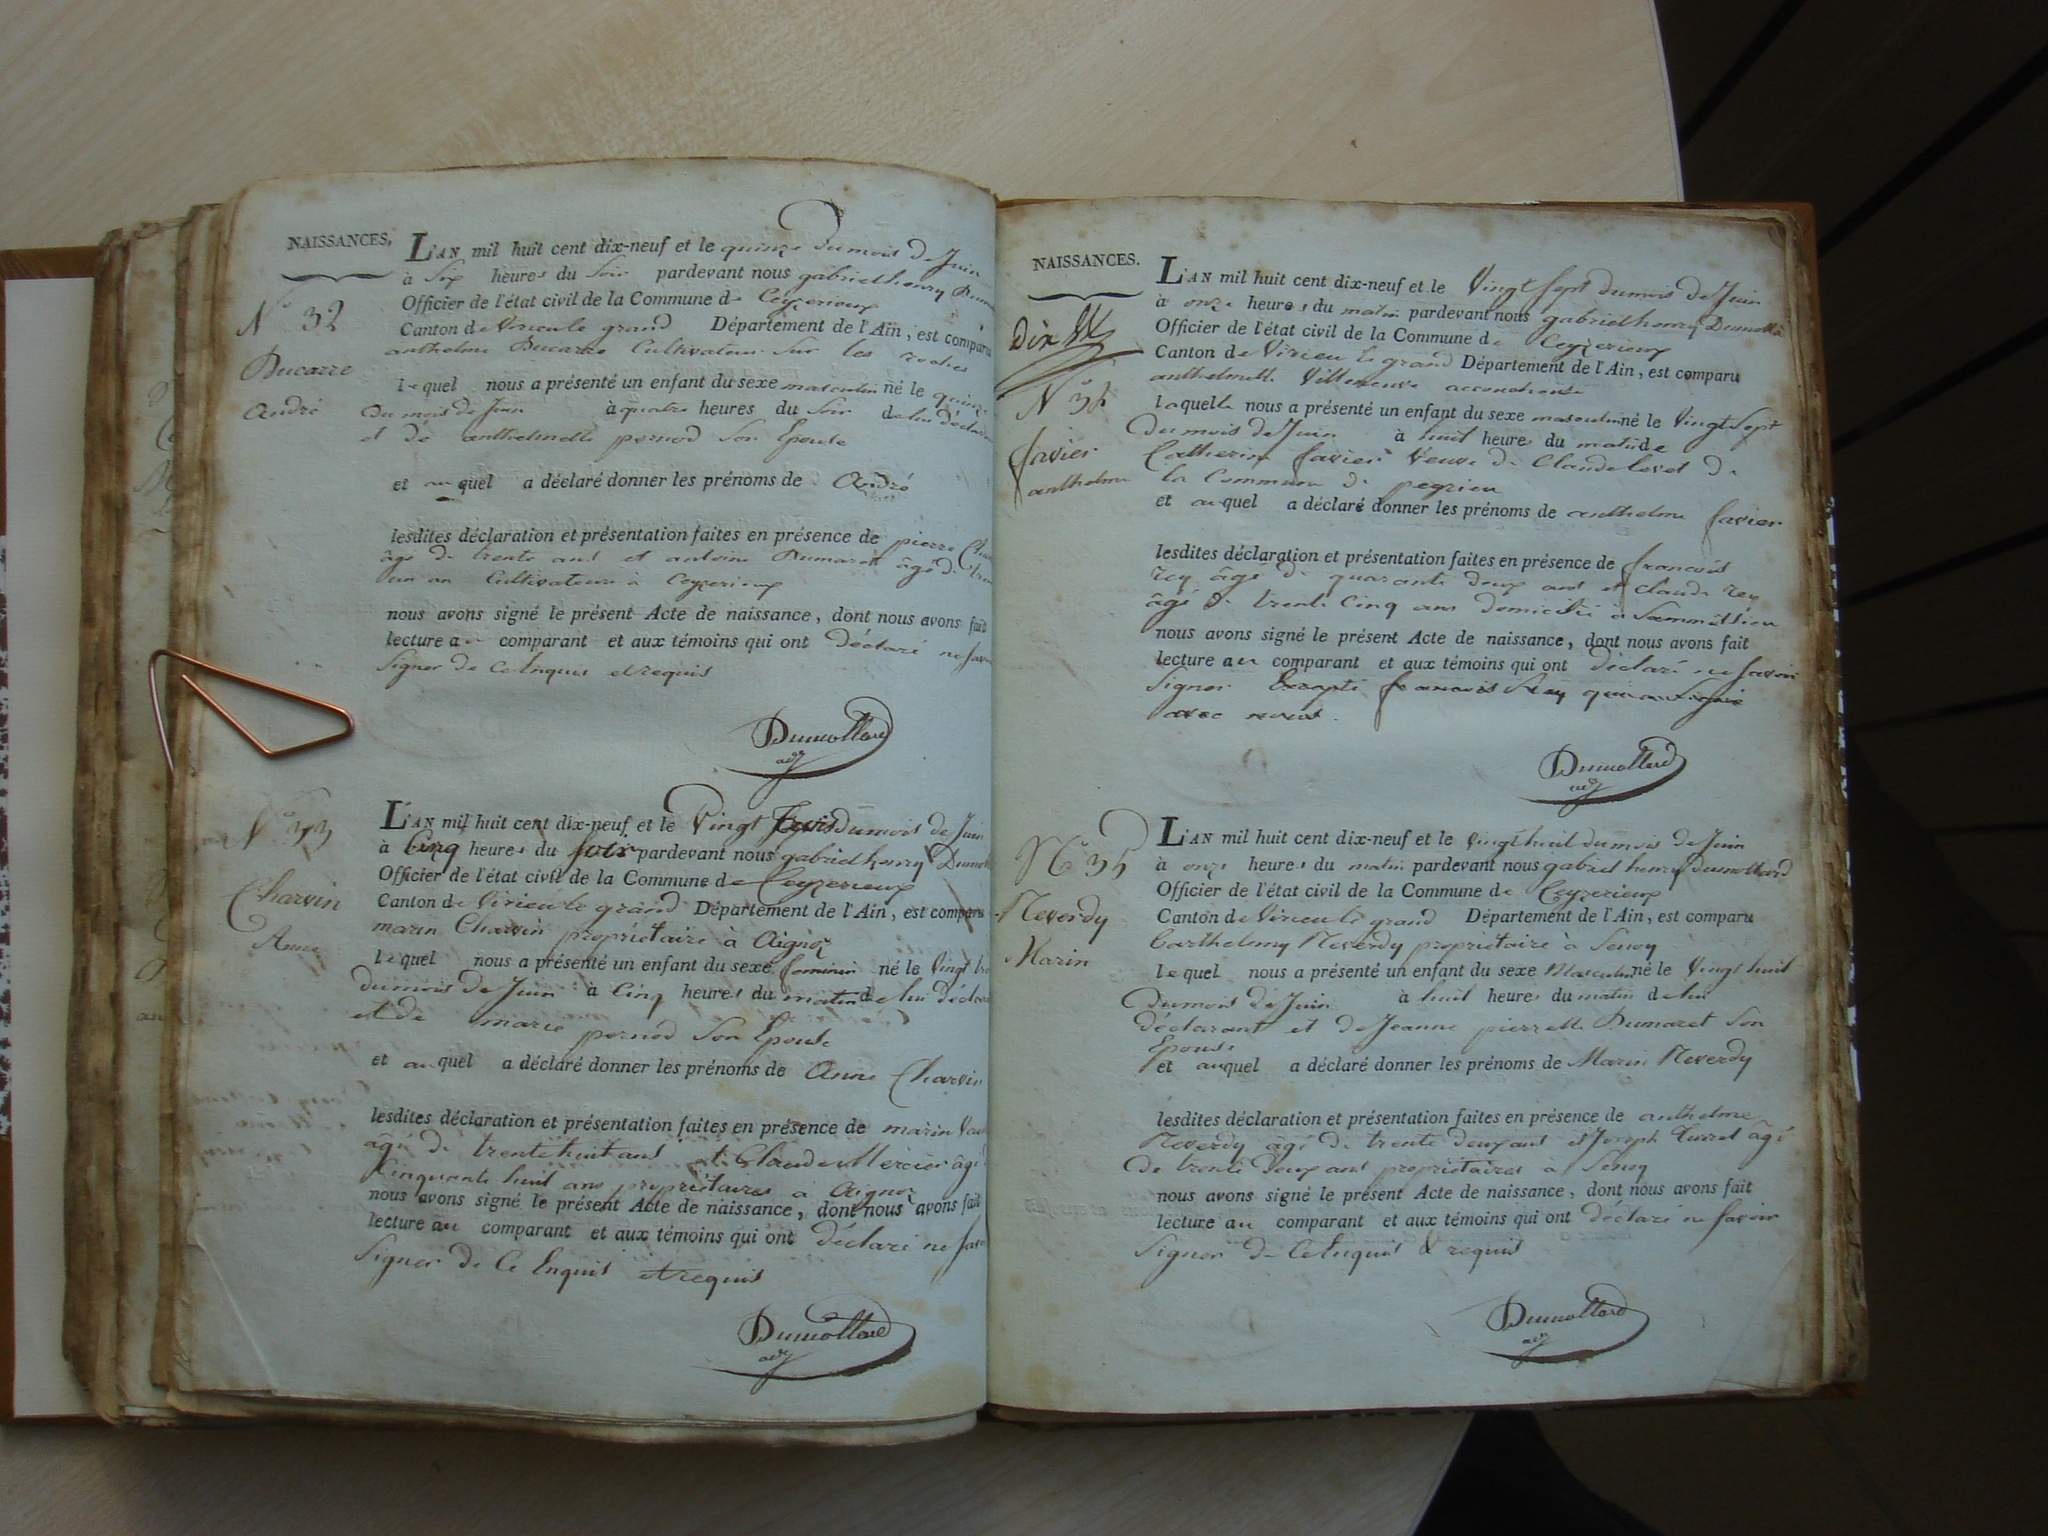 NAISSANCES.
L'AN mil huit cent dix-neuf et le quinze du mois de Juin
à Six heures du Soir pardevant nous gabriel henry
Officier de l'état civil de la Commune de Ceyzerieux
Canton de Virieu le grand Département de l'Ain, est comparu
anthelme Ducarre Cultivateur Sur les roches
N° 32
Ducarre
André
lequel nous a présenté un enfant du sexe masculin né le quinze
du mois de Juin à quatre heures du Soir de lui déclarant
et de anthelmette pernod Son Epouse
et auquel a déclaré donner les prénoms de André
lesdites déclaration et présentation faites en présence de pierre
âgé de trente ans et antoine Dumaret âgé de
un an Cultivateurs à Ceyzerieux
nous avons signé le présent Acte de naissance, dont nous avons fait
lecture au comparant et aux témoins qui ont déclaré ne savoir
Signer de ce Enquis et requis
Dumollard
adj
N° 33
Charvin
Anne
L'AN mil huit cent dix-neuf et le Vingt trois du mois de Juin
à Cinq heures du soir pardevant nous gabriel henry
Officier de l'état civil de la Commune de Ceyzerieux
Canton de Virieu le grand Département de l'Ain, est comparu
marin Charvin propriétaire à Aignoz
lequel nous a présenté un enfant du sexe feminin né le Vingt
du mois de Juin à Cinq heures du matin de lui déclarant
et de marie pernod Son Epouse
et auquel a déclaré donner les prénoms de Anne Charvin
lesdites déclaration et présentation faites en présence de marin
âgé de trente huit ans et Claude Mercier âgé
Cinquante huit ans propriétaires à Aignoz
nous avons signé le présent Acte de naissance, dont nous avons fait
lecture au comparant et aux témoins qui ont déclaré ne savoir
Signer de Ce Enquis et requis
Dumollard
adj
NAISSANCES.
Dix
N° 34
favier
anthelme
L'AN mil huit cent dix-neuf et le Vingt Sept du mois de Juin
à onze heures du matin pardevant nous gabriel henry Dumollard
Officier de l'état civil de la Commune de Ceyzerieux
Canton de Virieu le grand Département de l'Ain, est comparu
anthelmette Villeneuve accoucheuse
laquelle nous a présenté un enfant du sexe masculin né le Vingt Sept
du mois de Juin à huit heures du matin de
Catherine favier Veuve de Claude de
la Commune de peyrieu
et auquel a déclaré donner les prénoms de anthelme favier
lesdites déclaration et présentation faites en présence de francois
rey âgé de quarante deux ans et claude rey
âgé de trente Cinq ans domicilié à
nous avons signé le présent Acte de naissance, dont nous avons fait
lecture au comparant et aux témoins qui ont déclaré ne savoir
Signer Excepté francois Rey qui a signé
avec nous.
Dumollard
adj
N° 35
Reverdy
Marin
L'AN mil huit cent dix-neuf et le Vingt huit du mois de Juin
à onze heures du matin pardevant nous gabriel henry dumollard
Officier de l'état civil de la Commune de Ceyzerieux
Canton de Virieu le grand Département de l'Ain, est comparu
barthelemy Reverdy propriétaire à Senoy
lequel nous a présenté un enfant du sexe Masculin né le Vingt huit
du mois de Juin à huit heures du matin de lui
déclarant et de Jeanne pierrette Dumaret Son
Epouse
et auquel a déclaré donner les prénoms de Marin Reverdy
lesdites déclaration et présentation faites en présence de anthelme
Reverdy âgé de trente deux ans et Joseph âgé
de trente deux ans propriétaires à Senoy
nous avons signé le présent Acte de naissance, dont nous avons fait
lecture au comparant et aux témoins qui ont déclaré ne savoir
Signer de Ce Enquis & requis
Dumollard
adj